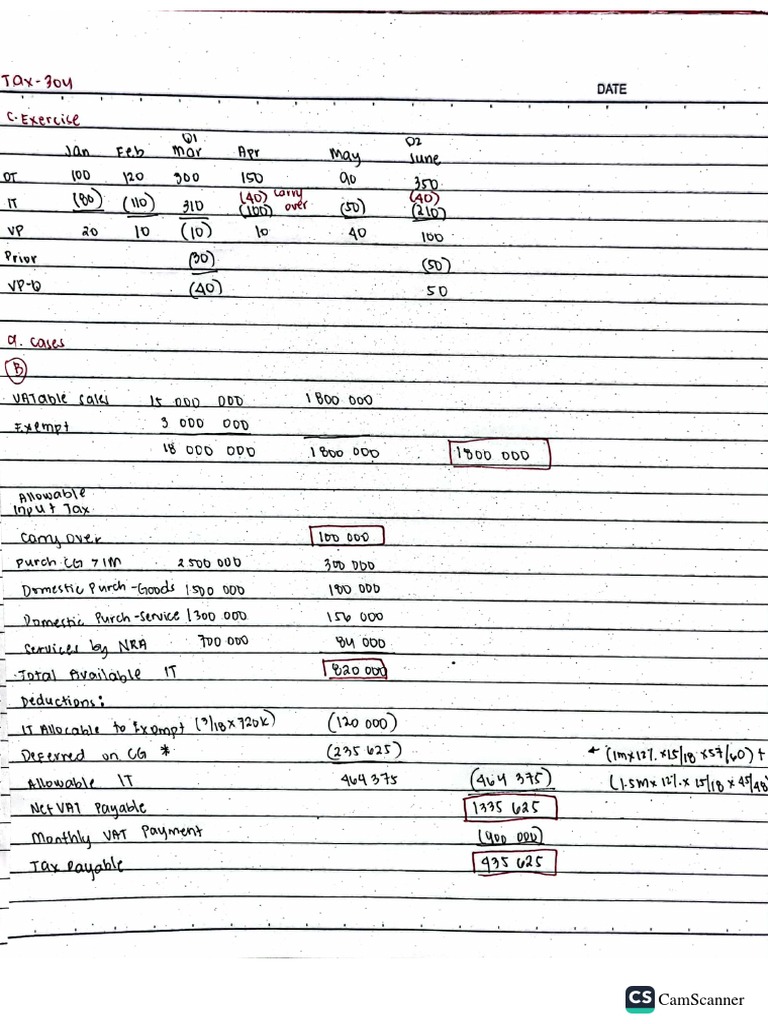 Tax-304
DATE
C. Exercise
Q1 Q2
Jan Feb Mar Apr May June
OT 100 120 300 150 90 350
(40) carry over (40)
IT (80) (110) 310 (100) (50) (210)
VP 20 10 (10) 10 40 100
Prior (30) (50)
VP-Q (40) 50
a. Cases
B
VATable sales 15 000 000 1 800 000
Exempt 3 000 000
18 000 000 1 800 000 1 800 000
Allowable
Input Tax
Carry Over 100 000
Purch CG > 1M 2 500 000 300 000
Domestic Purch-Goods 1 500 000 180 000
Domestic Purch-Service 1 300 000 156 000
Services by NRA 700 000 84 000
Total Available IT 820 000
Deductions:
IT Allocable to Exempt (3/18 x 720k) (120 000)
Deferred on CG * (235 625) * (1m x 12% x 15/18 x 57/60) +
Allowable IT 464 375 (464 375) (1.5m x 12% x 15/18 x 45/48
Net VAT Payable 1 335 625
Monthly VAT Payment (900 000)
Tax Payable 435 625
CS CamScanner